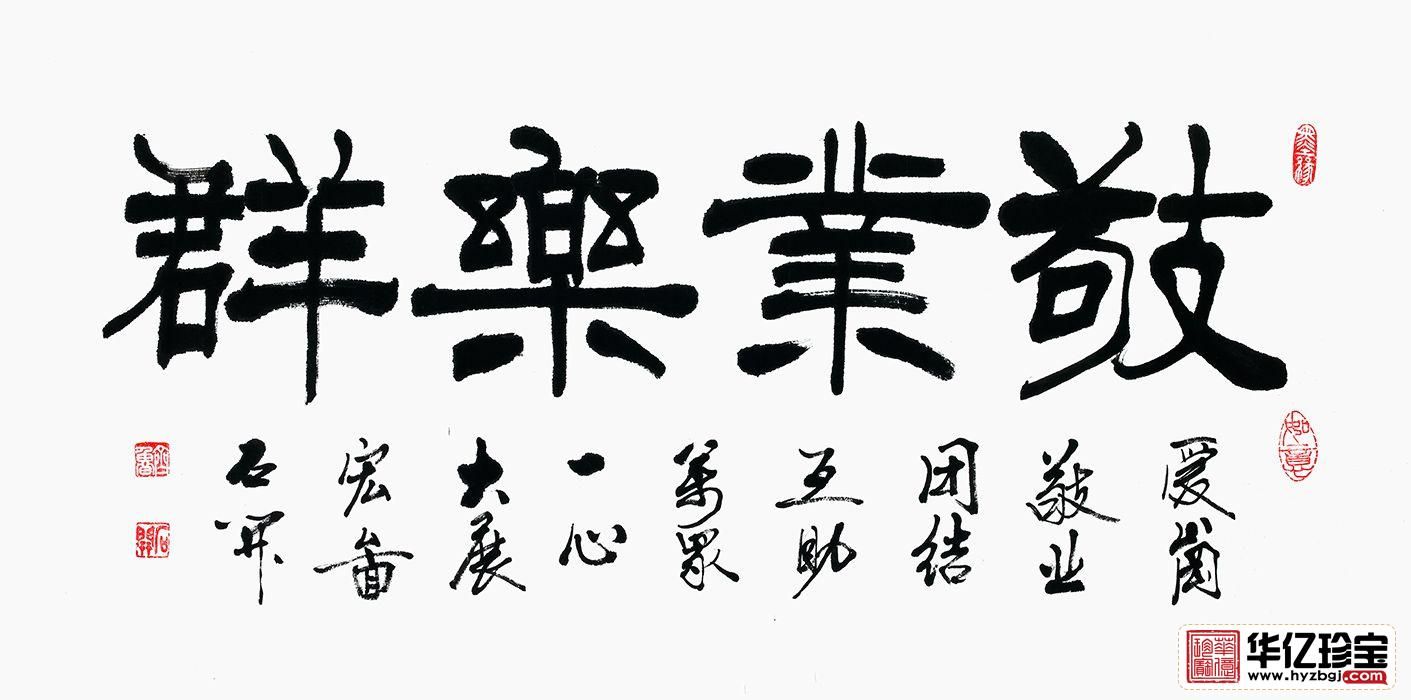 敬業樂群
爱崗
敬业
团结
互助
萬眾
一心
大展
宏畣
石开
如意
华亿珍宝
www.hyzbgj.com